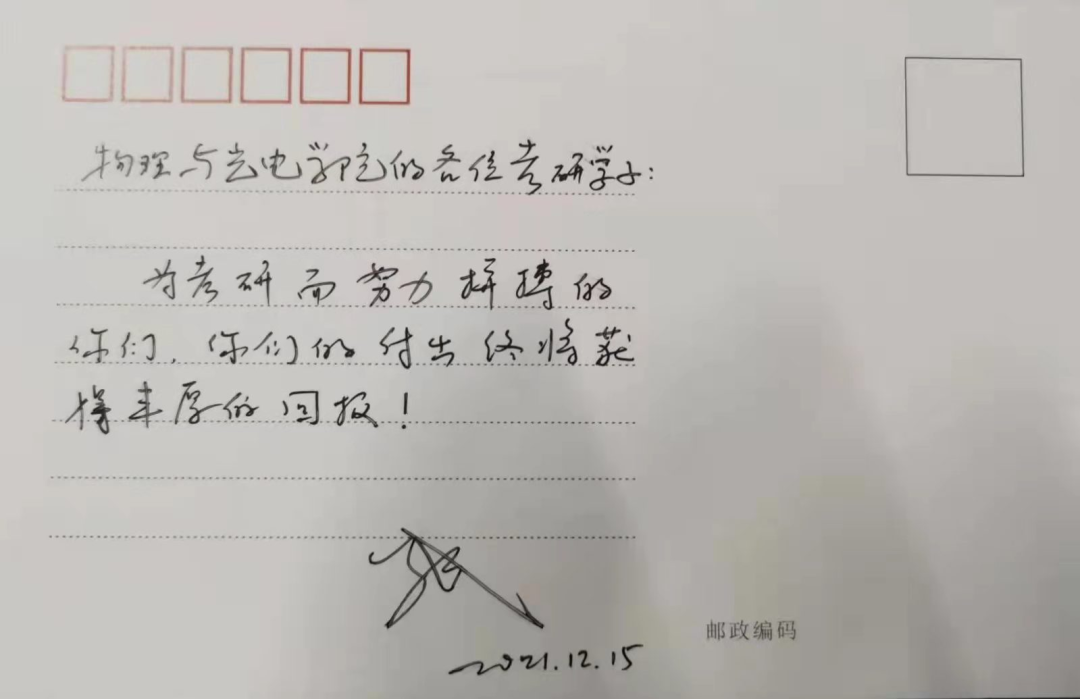 物理与光电学院的各位考研学子：
为考研而努力拼搏的
你们，你们的付出终将获
得丰厚的回报！
2021.12.15
邮政编码